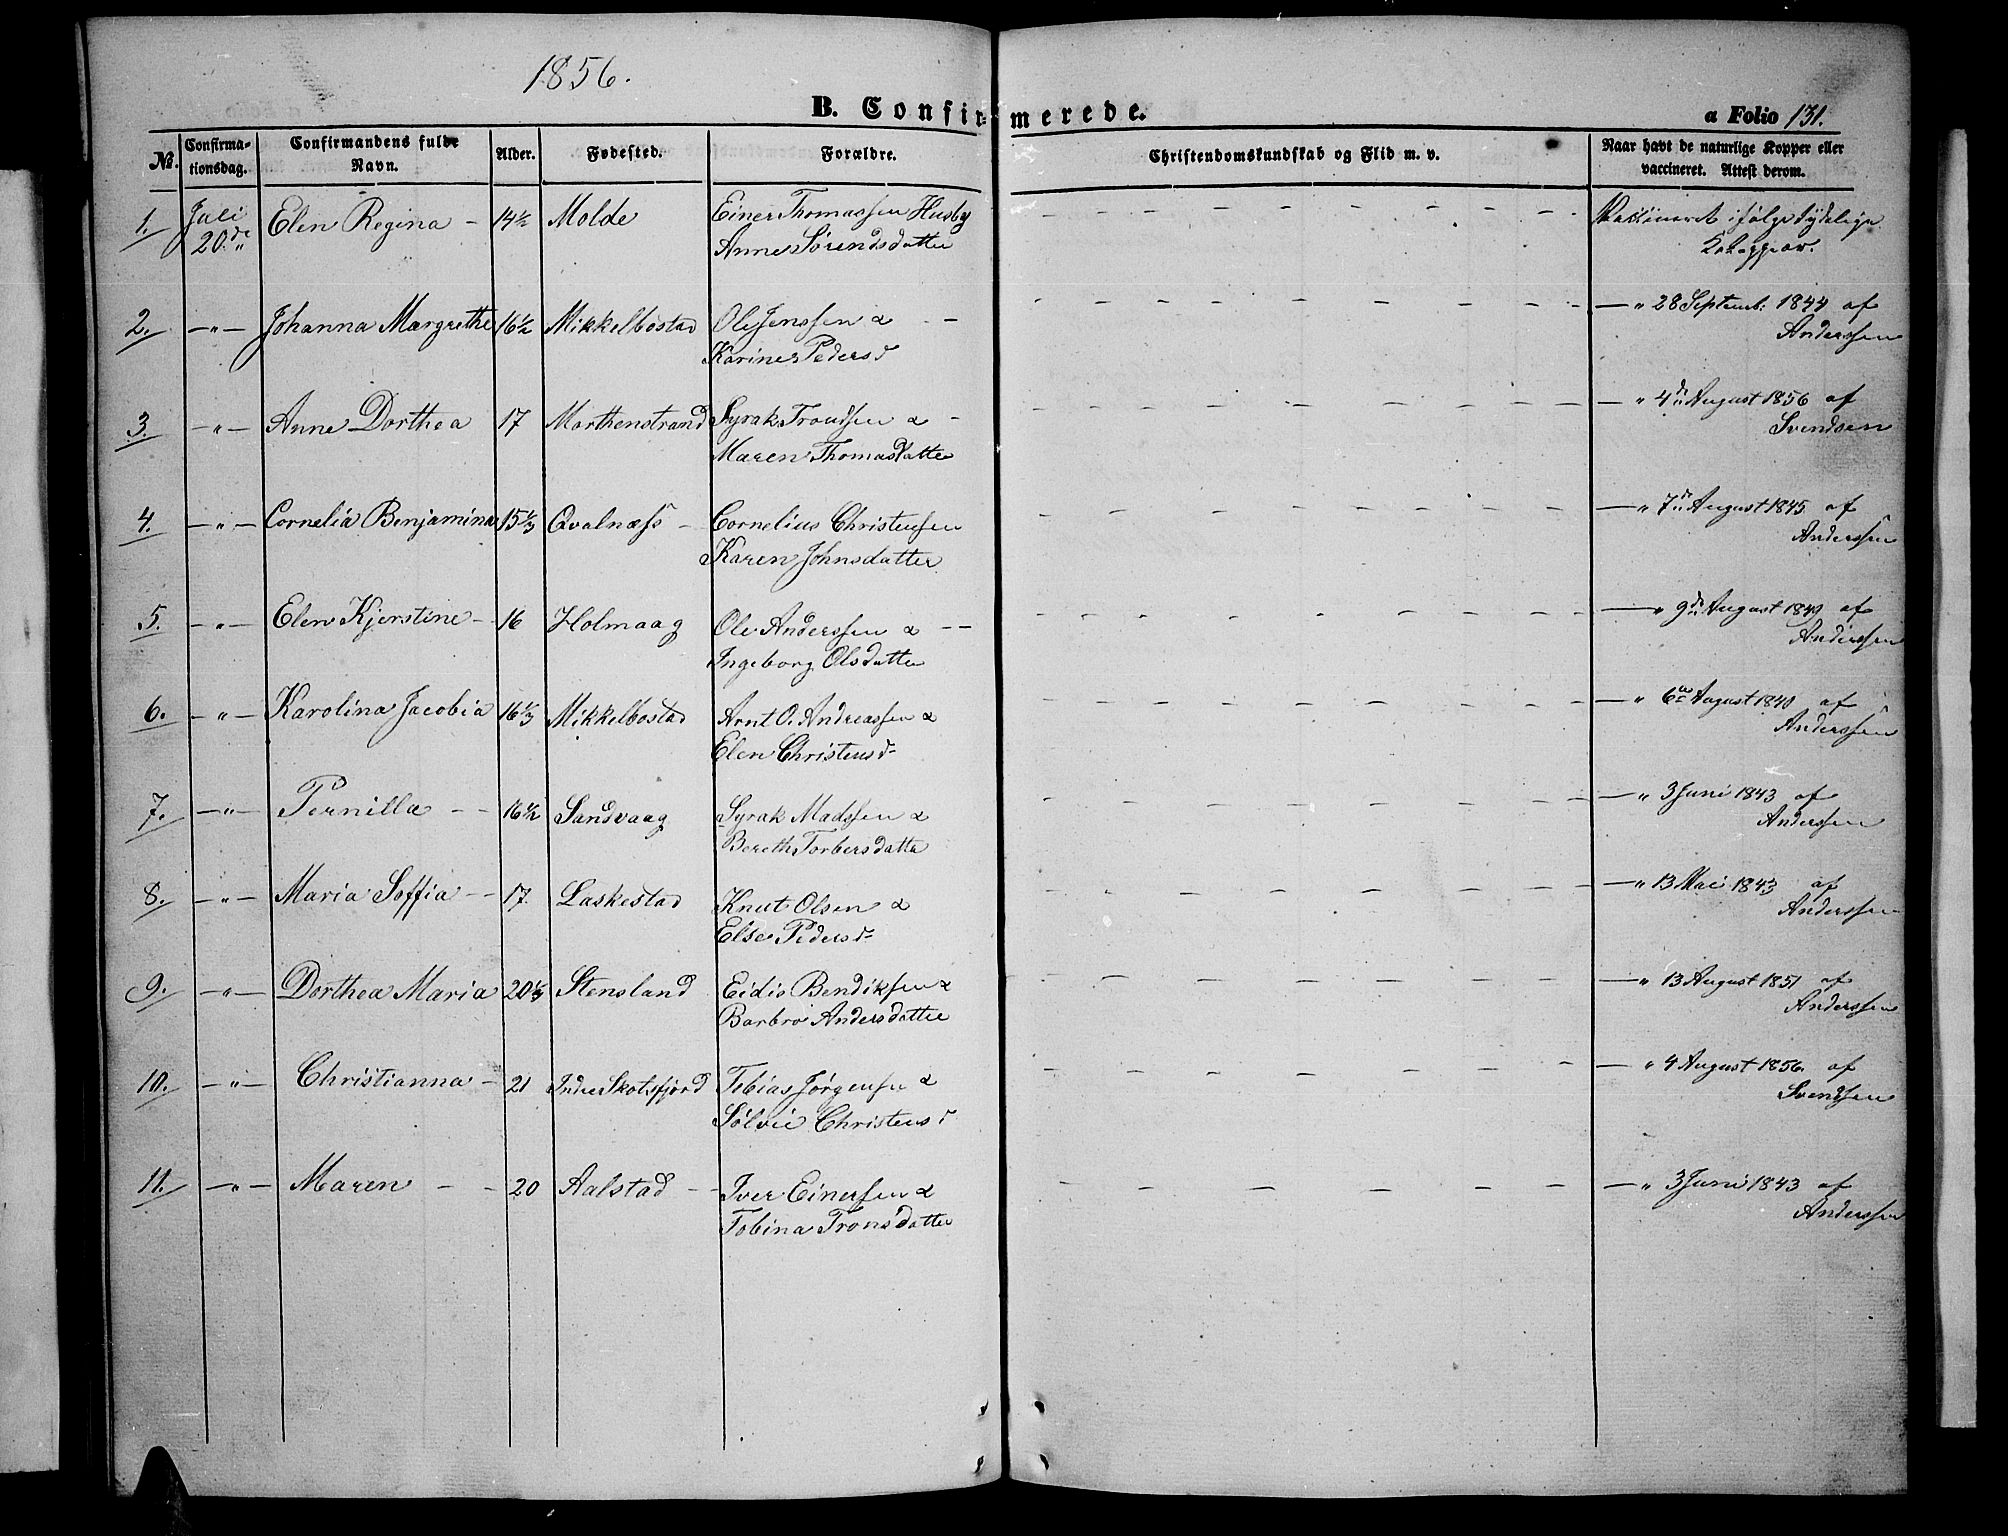 1856.
B. Confirmerede.
a Folio 131.
No. Confirmationsdag. Confirmandens fulde Navn. Alder. Fødested. Forældre. Christendomskundskab og Flid m. v. Naar havt de naturlige Kopper eller vaccineret. Attest derom.
1. Juli 20de Elen Regina - 14 1/2 Molde Einer Thomassen Husby - - - - Vaksineret ifølge tydelige
Anne Sørendsdatter Kokoppear.
2. -"- Johanna Margrethe 16 1/2 Mikkelbostad Ole Jenssen & - - -" 28 Septemb: 1844 af
Karine Pedersd Anderssen
3. -"- Anne Dorthea 17 Morthenstrand Syrak Trondsen & - -" 4de August 1856 af
Maren Thomasdatter Svendsen
4. -"- Cornelia Benjamina 15 1/3 Qvalnæss - Cornelius Christensen -" 7de August 1845 af
Karen Johnsdatter Anderssen
5. -"- Elen Kjerstine - 16 Holmaag Ole Anderssen & - - -" 9de August af
Ingeborg Olsdatter Anderssen
6. -"- Karolina Jacobia 16 1/3 Mikkelbostad Arnt O. Andreassen & -" 6te August 1840 af
Elen Christensd- Anderssen
7. -"- Pernilla - - 16 1/2 Sandvaag Syrak Madssen & -" 3 Juni 1843 af
Bereth Torbersdatter Anderssen
8. -"- Maria Soffia - - 17. Laskestad Knut Olsen & -" 13 Mai 1843 af
Else Pedersd- Anderssen
9. -"- Dorthea Maria 20 1/3 Stensland Eidis Bendiksen & -" 13 August 1851 af
Barbro Andersdatter Anderssen
10. -"- Christianna - 21 Indre Skotsfjord Tobias Jørgensen & -" 4 August 1856 af
Sølvie Christensd Svendsen
11. -"- Maren - - 20 Aalstad - - Iver Einersen & -" 3 Juni 1843 af
Tobina Tronsdatter Anderssen